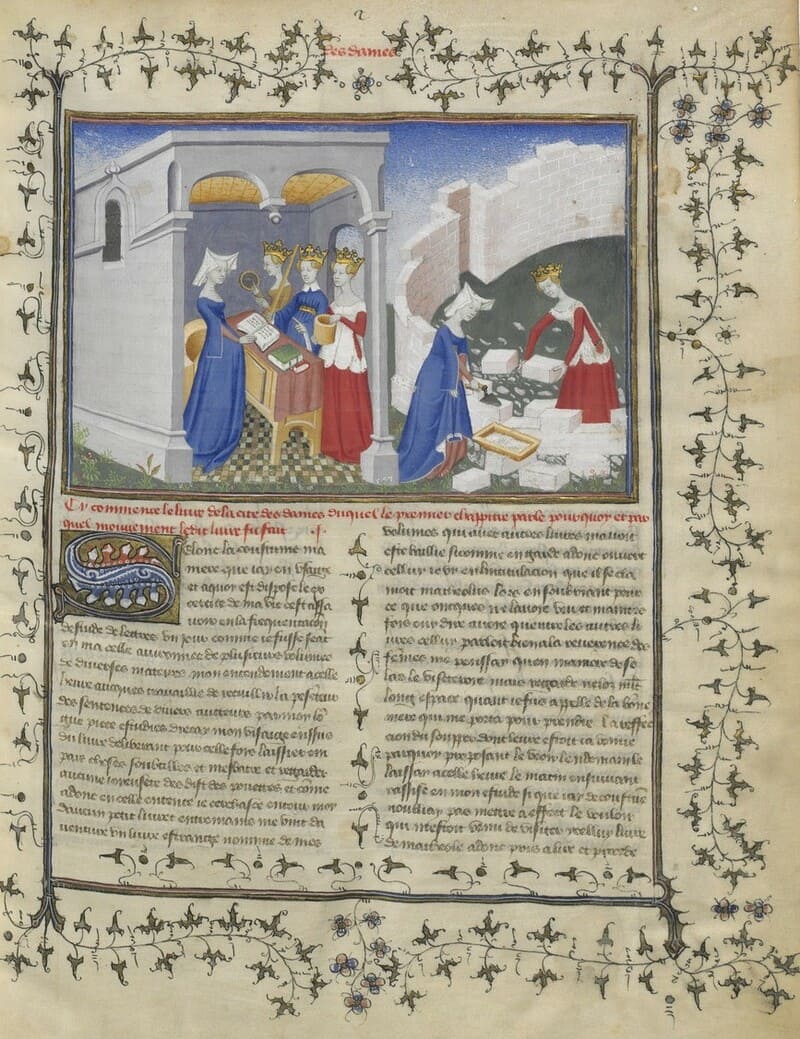 2
des dames
Cy commence le livre de la cite des dames duquel le premier chapitre parle pour quoy et par
quel mouvement ledit livre fu fait . j .
Selonc la coustume ma
niere que iay en usaige
et a quoy est dispose le ex
cercite de ma vie cest assa
voir en la frequentacion
destude de lettres un iour comme ie fusse seant
en ma celle avironnee de plusieurs volumes
de diverses materes mon entendement a celle
heure auques travaillie de recuillir la pesenteur
des sentences de divers aucteurs par moy lo
gue piece estudies drecay mon visaige ensus
du livre deliberant pour celle fois laissier em
pais choses soubtilles et mesbatre et regarder
aucune ioyeusete des dis des pouetes et comme
adonc en celle entente ie cerchasse entour moy
daucun petit livret entre mains me vint da
venture un livre estrange nomme de mes
volumes qui avec autres livres mavoit
este baillie si comme en garde adonc ouvert
cellui ie vy en lintitulacion que il se cla
moit matheolus lors en soubriant pour
ce que oncques ne lavoie veu et maintes
fois ouy dire avoie quentre les autres li
vres cellui parloit bien a la reverence des
femmes me penssay quen maniere de so
las le visiteroie mais regarde ne loz mie
long espace quant ie fus appellee de la bonne
mere qui me porta pour prendre la reffec
cion du soupper dont leure estoit ia venue
parquoy proposant le veoir lendemain le
laissay a celle heure le matin ensuivant
rassise en mon estude si que iay de coustume
noubliay pas mettre a effect le vouloir
qui mestoit venu de visiter ycellui livre
de matheole adonc pris a lire et proceder